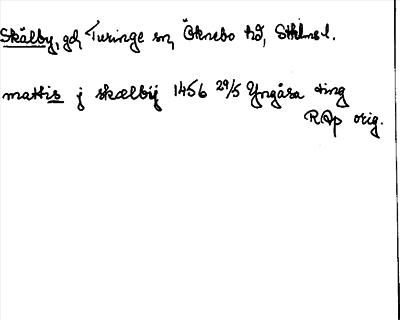 Skälby, gd, Turinge sn, Öknebo hd, Sthlms l.
mattis j skælbij 1456 29/5 Yngåsa ting
RAp orig.